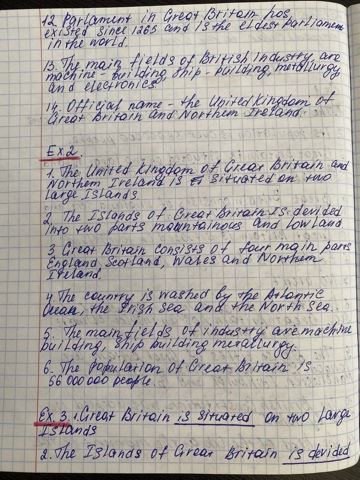 12. Parlament in Great Britain has
existed since 1265 and is the eldest parliamen
in the world.
13. The main fields of British industry are
machine-building ship-puilding, metallurgy
and electronics
14. Official name - the United Kingdom of
Great Britain and Northern Ireland.
Ex 2
1. The United Kingdom of Great Britain and
Northern Ireland is situated on two
large Islands
2. The Islands of Great Britain is devided
into two parts mountainous and Lowland
3 Great Britain consists of four main parts
England, Scotland, Wales and Northern
Ireland.
4. The country is washed by the Atlantic
Ocean, the Irish Sea and the North Sea.
5. The main fields of industry are machine
building, ship building metallurgy.
6. The population of Great Britain is
56 000 000 people.
Ex. 3 1. Great Britain is situared on two large
Islands
2. The Islands of Great Britain is devided